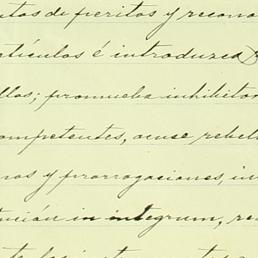 tos de peritos y recono
artículos é introduzca
llos; promueba inhibitor
competentes, acuse rebel
nos y prorrogaciones, in
tución in integrum, re